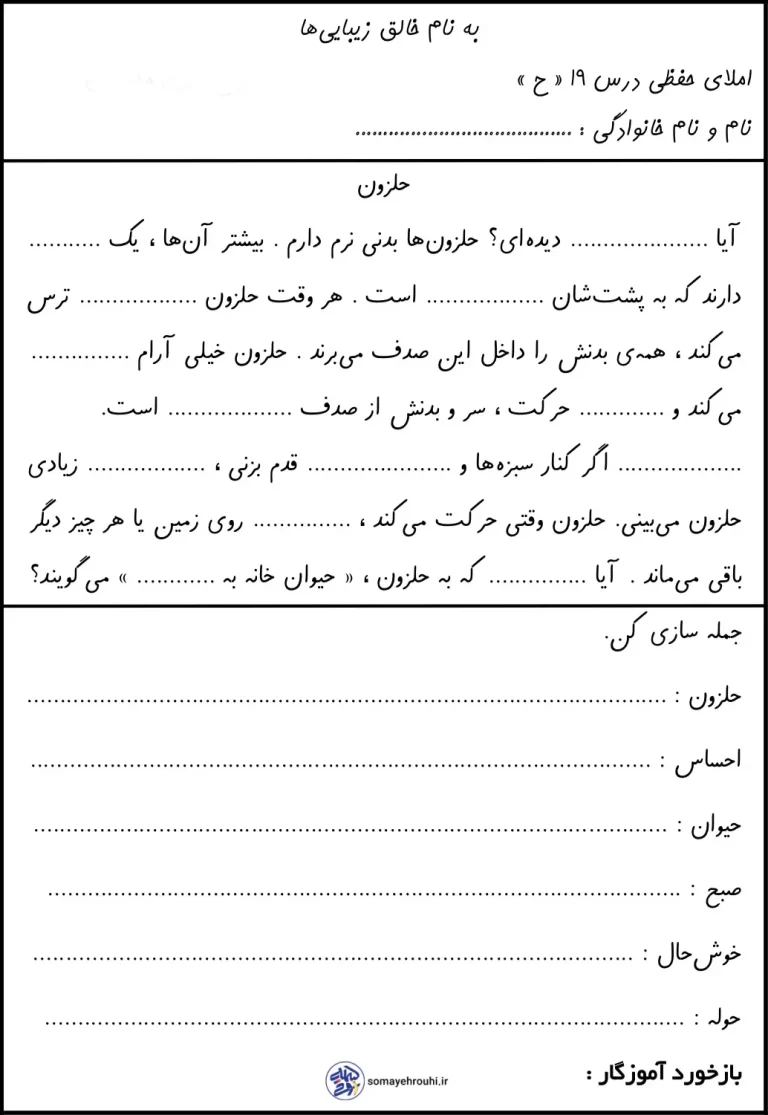 به نام خالق زیبایی‌ها
املای حفظی درس ۱۹ « ح »
نام و نام خانوادگی : ........................................
حلزون
آیا ..................... دیده‌ای؟ حلزون‌ها بدنی نرم دارم . بیشتر آن‌ها ، یک ...........
دارند که به پشت‌شان .................. است . هر وقت حلزون .................. ترس
می‌کند ، همه‌ی بدنش را داخل این صدف می‌برند . حلزون خیلی آرام ...............
می‌کند و ............. حرکت ، سر و بدنش از صدف ................... است.
................... اگر کنار سبزه‌ها و ...................... قدم بزنی ، .................. زیادی
حلزون می‌بینی. حلزون وقتی حرکت می‌کند ، ............... روی زمین یا هر چیز دیگر
باقی می‌ماند . آیا ............... که به حلزون ، « حیوان خانه به ............ » می‌گویند؟
جمله سازی کن.
حلزون : ................................................................................................
احساس : ..............................................................................................
حیوان : ................................................................................................
صبح : ................................................................................................
خوش‌حال : ...........................................................................................
حوله : .................................................................................................
بازخورد آموزگار :
somayehrouhi.ir